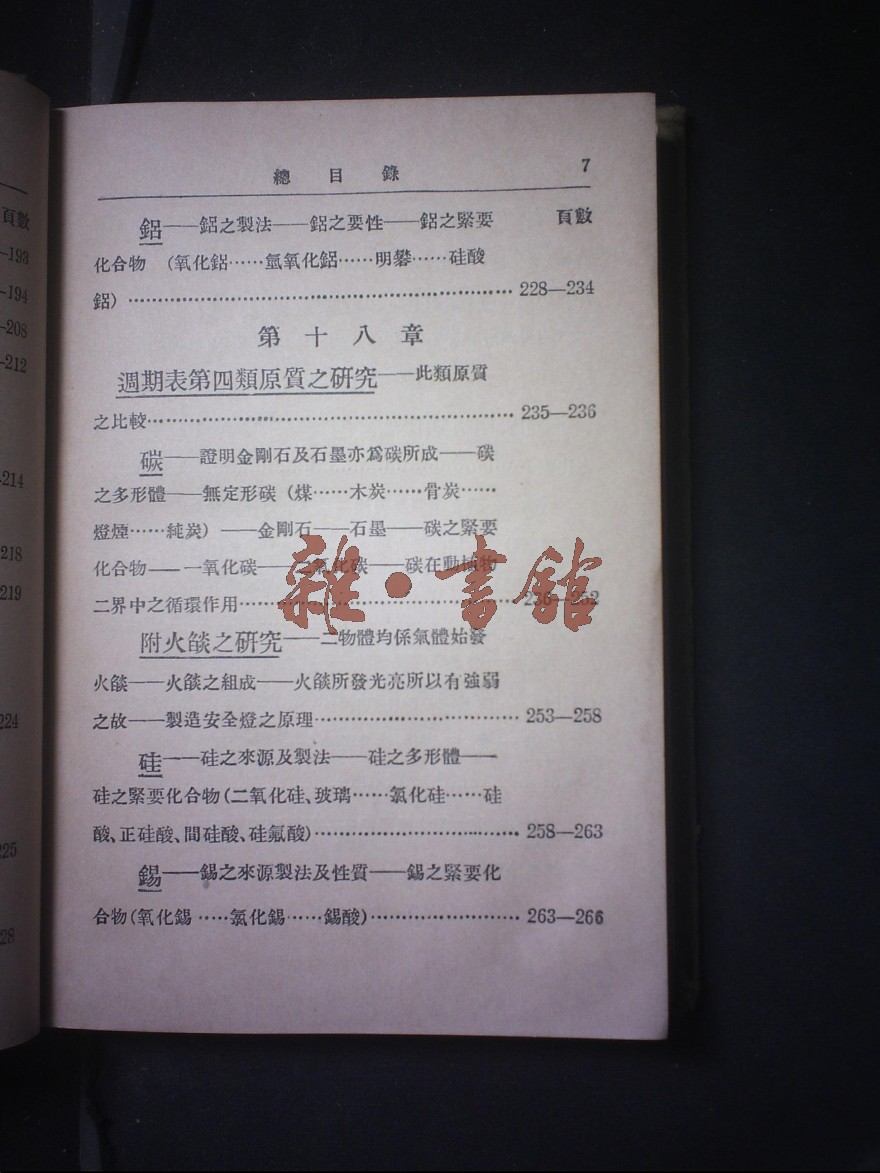 總目錄 7
頁數
鋁——鋁之製法——鋁之要性——鋁之緊要
化合物 (氧化鋁……氫氧化鋁……明礬……硅酸
鋁)……228—234
第十八章
週期表第四類原質之研究——此類原質
之比較……235—236
碳——證明金剛石及石墨亦爲碳所成——碳
之多形體——無定形碳 (煤……木炭……骨炭……
燈煙……純炭) ——金剛石——石墨——碳之緊要
化合物——一氧化碳——二氧化碳——碳在動植物
二界中之循環作用……236—252
附火燄之研究——二物體均係氣體始發
火燄——火燄之組成——火燄所發光亮所以有強弱
之故——製造安全燈之原理……253—258
硅——硅之來源及製法——硅之多形體——
硅之緊要化合物(二氧化硅、玻璃……氯化硅……硅
酸、正硅酸、間硅酸、硅氟酸)……258—263
錫——錫之來源製法及性質——錫之緊要化
合物(氧化錫……氯化錫……錫酸)……263—266
雜·書館
頁數
—193
—194
—208
—212
-214
218
219
224
225
28